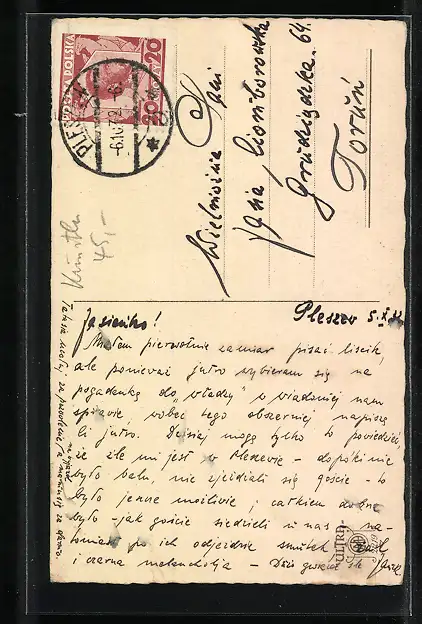 POCZTA POLSKA
20 20
-6.10.32.-6
Wielmożna Pani
Jasia Ciomborowska
Grudziądzka 64.
Toruń
45,-
Pleszew 5.X.32
Jasieńko!
Miałem pierwotnie zamiar pisać liścik,
ale ponieważ jutro wybieram się na
pogadankę do "władzy" w wiadomej nam
sprawie, wobec tego obszerniej napiszę
li jutro. Dzisiaj mogę tylko to powiedzieć,
że źle mi jest w Pleszewie - dopóki nie
było balu, nie zjeżdżali się goście - to
było jeszcze możliwie i całkiem dobrze
było - jak goście siedzieli u nas - na-
tomiast po ich odjeździe smutek, żal
i czarna melancholja -
ULTRA